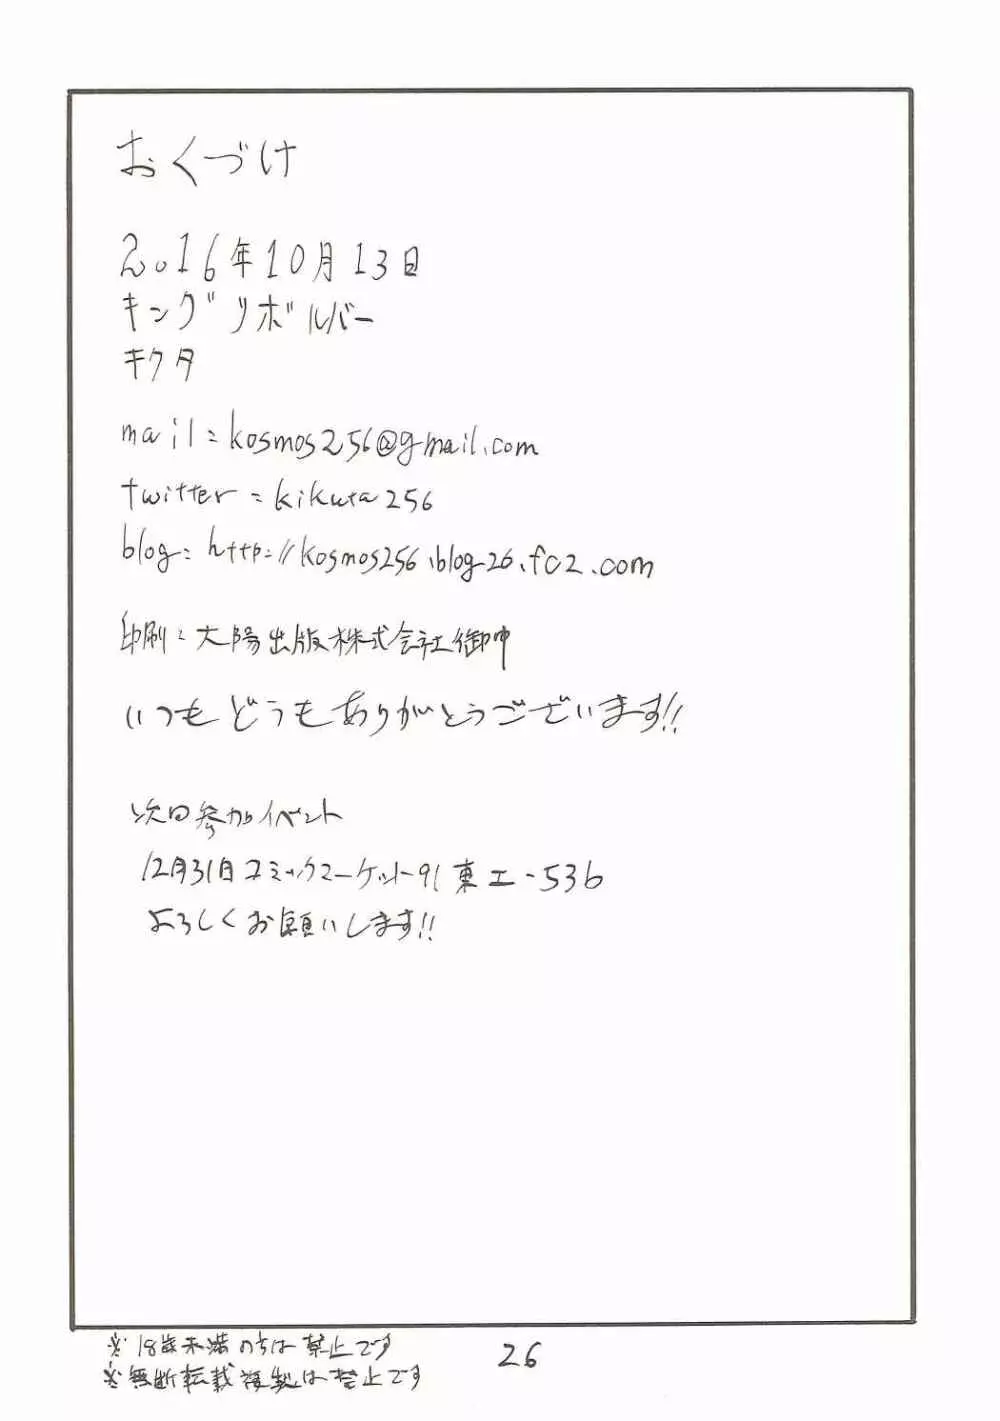 おくづけ
2016年10月13日
キングリボルバー
キクタ
mail:kosmos256@gmail.com
twitter:kikuta256
blog:http://kosmos256.blog26.fc2.com
印刷:大陽出版株式会社御中
いつもどうもありがとうございます!!
次回参加イベント
12月31日コミックマーケット91東エ-53b
よろしくお願いします!!
※18歳未満の方は禁止です
※無断転載複製は禁止です
26